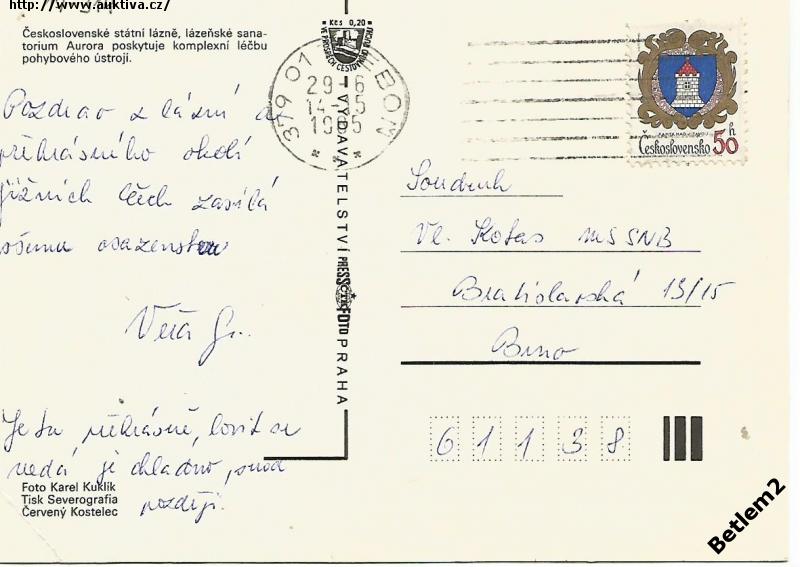 http://www.auktiva.cz/
Československé státní lázně, lázeňské sana-
torium Aurora poskytuje komplexní léčbu
pohybového ústrojí.
Pozdrav z lázní a
překrásného okolí
jižních Čech zasílá
všemu osazenstvu
Věra
Je tu překrásně, lovit se
nedá je chladno, snad
později.
Foto Karel Kuklík
Tisk Severografia
Červený Kostelec
Kčs 0,20
VYDAVATELSTVÍ PRESSFOTO PRAHA
ČTK
379 01 TŘEBOŇ
29-6
1985
Československo 50 h
Soudruh
Vl. Kotas MS SNB
Bratislavská 13/15
Brno
61138
Betlem2